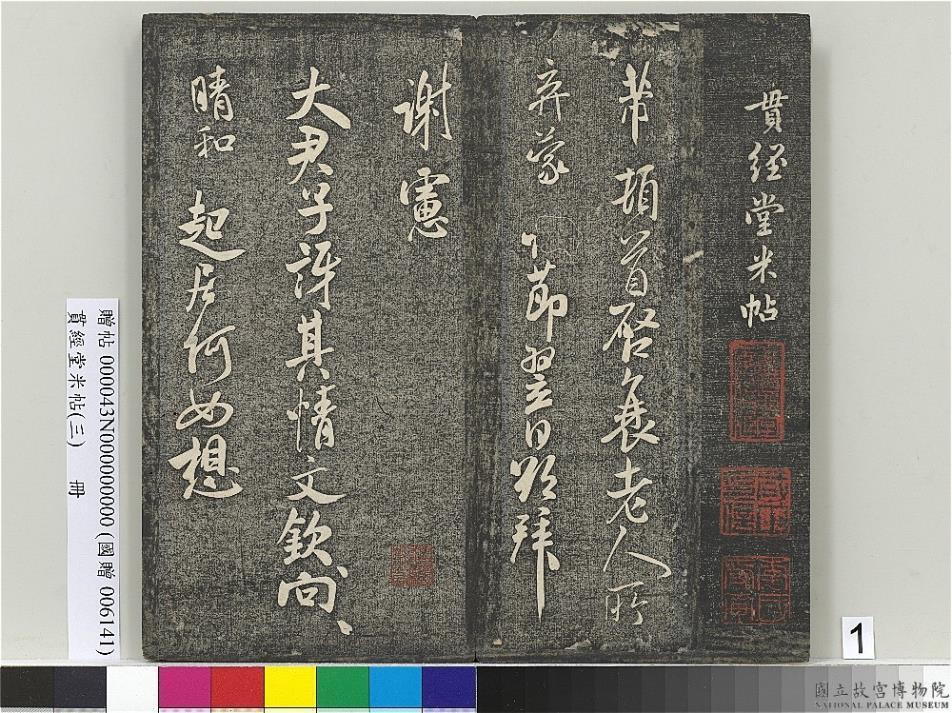 貫經堂米帖
芾頓首啓襄老人所
弃蒙
節翌日躬拜
謝憲
大尹子訝其情文欽向
晴和 起居何如想
贈帖 000043N000000000 (國贈 006141)
貫經堂米帖(三) 冊
1
國立故宮博物院
NATIONAL PALACE MUSEUM